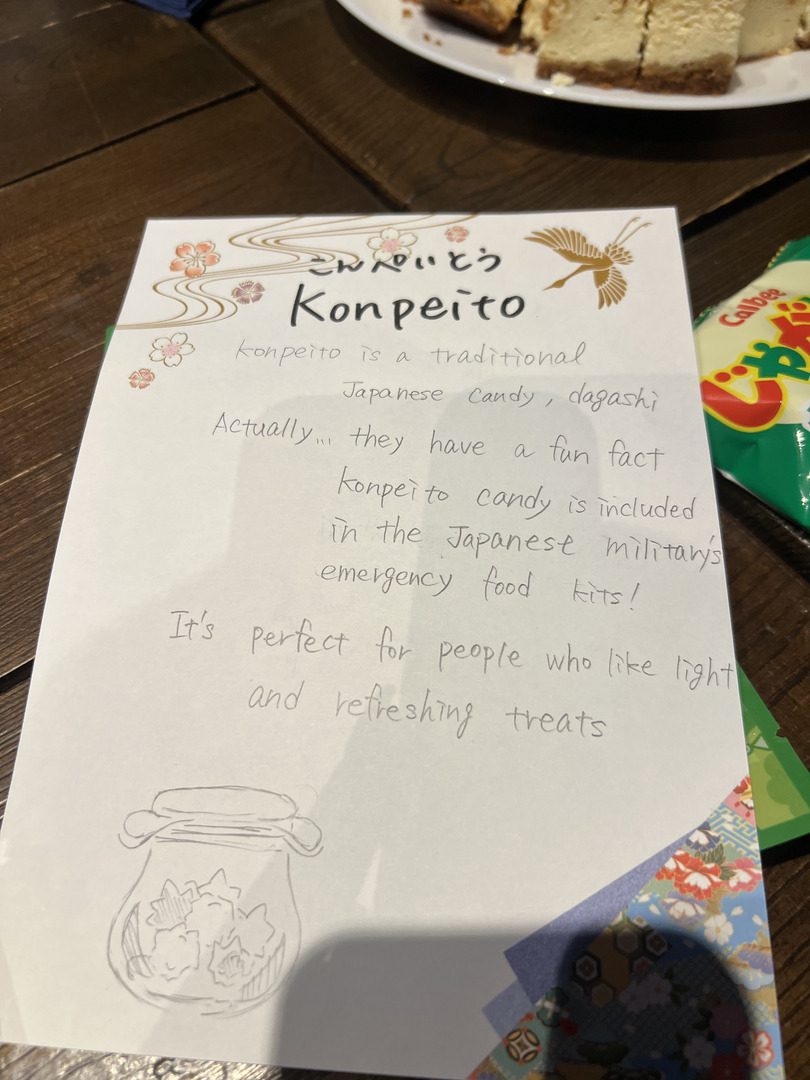 こんぺいとう
Konpeito
Konpeito is a traditional
Japanese candy, dagashi
Actually... they have a fun fact
Konpeito candy is included
in the Japanese military's
emergency food kits!
It's perfect for people who like light
and refreshing treats
Calbee
じゃが